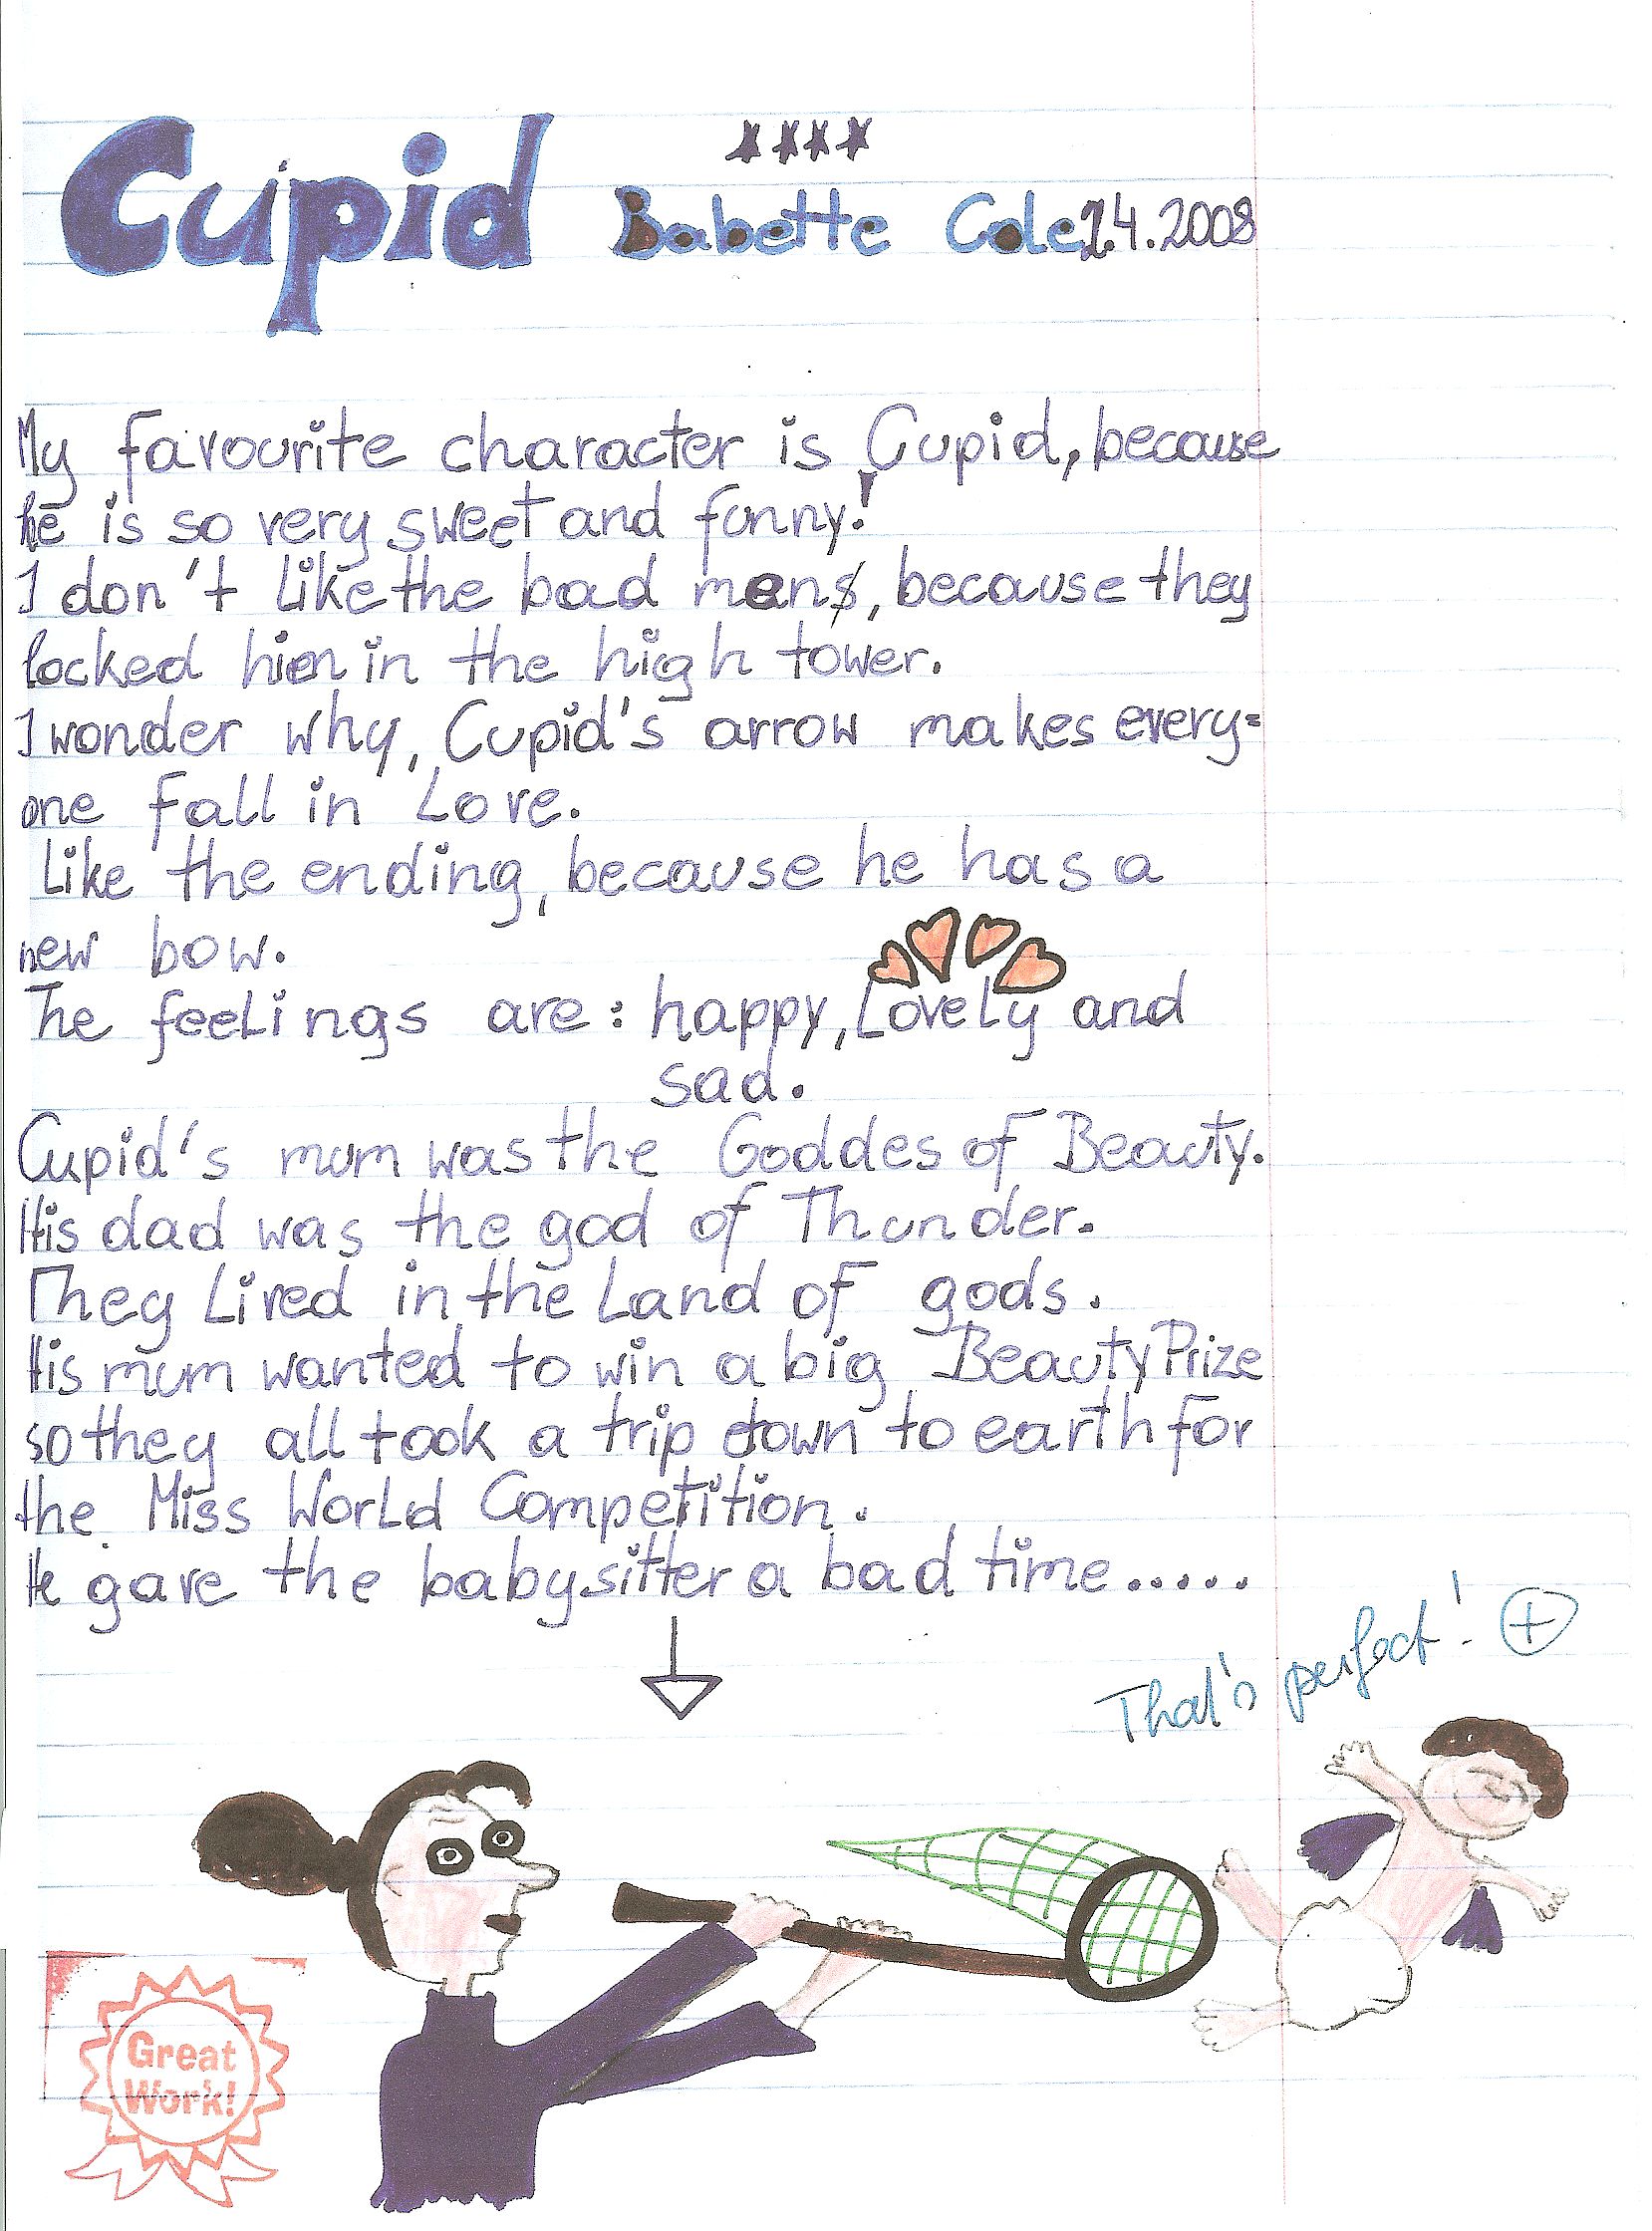 Cupid
Babette Cole 1.4.2008
My favourite character is Cupid, because
he is so very sweet and funny!
I don't like the bad men, because they
locked him in the high tower.
I wonder why, Cupid's arrow makes every=
one fall in Love.
Like the ending, because he has a
new bow.
The feelings are: happy, Lovely and
sad.
Cupid's mum was the Goddes of Beauty.
His dad was the god of Thunder.
They Lived in the Land of gods.
His mum wanted to win a big Beauty Prize
so they all took a trip down to earth for
the Miss World Competition.
He gave the babysitter a bad time.....
That's perfect! +
Great
Work!